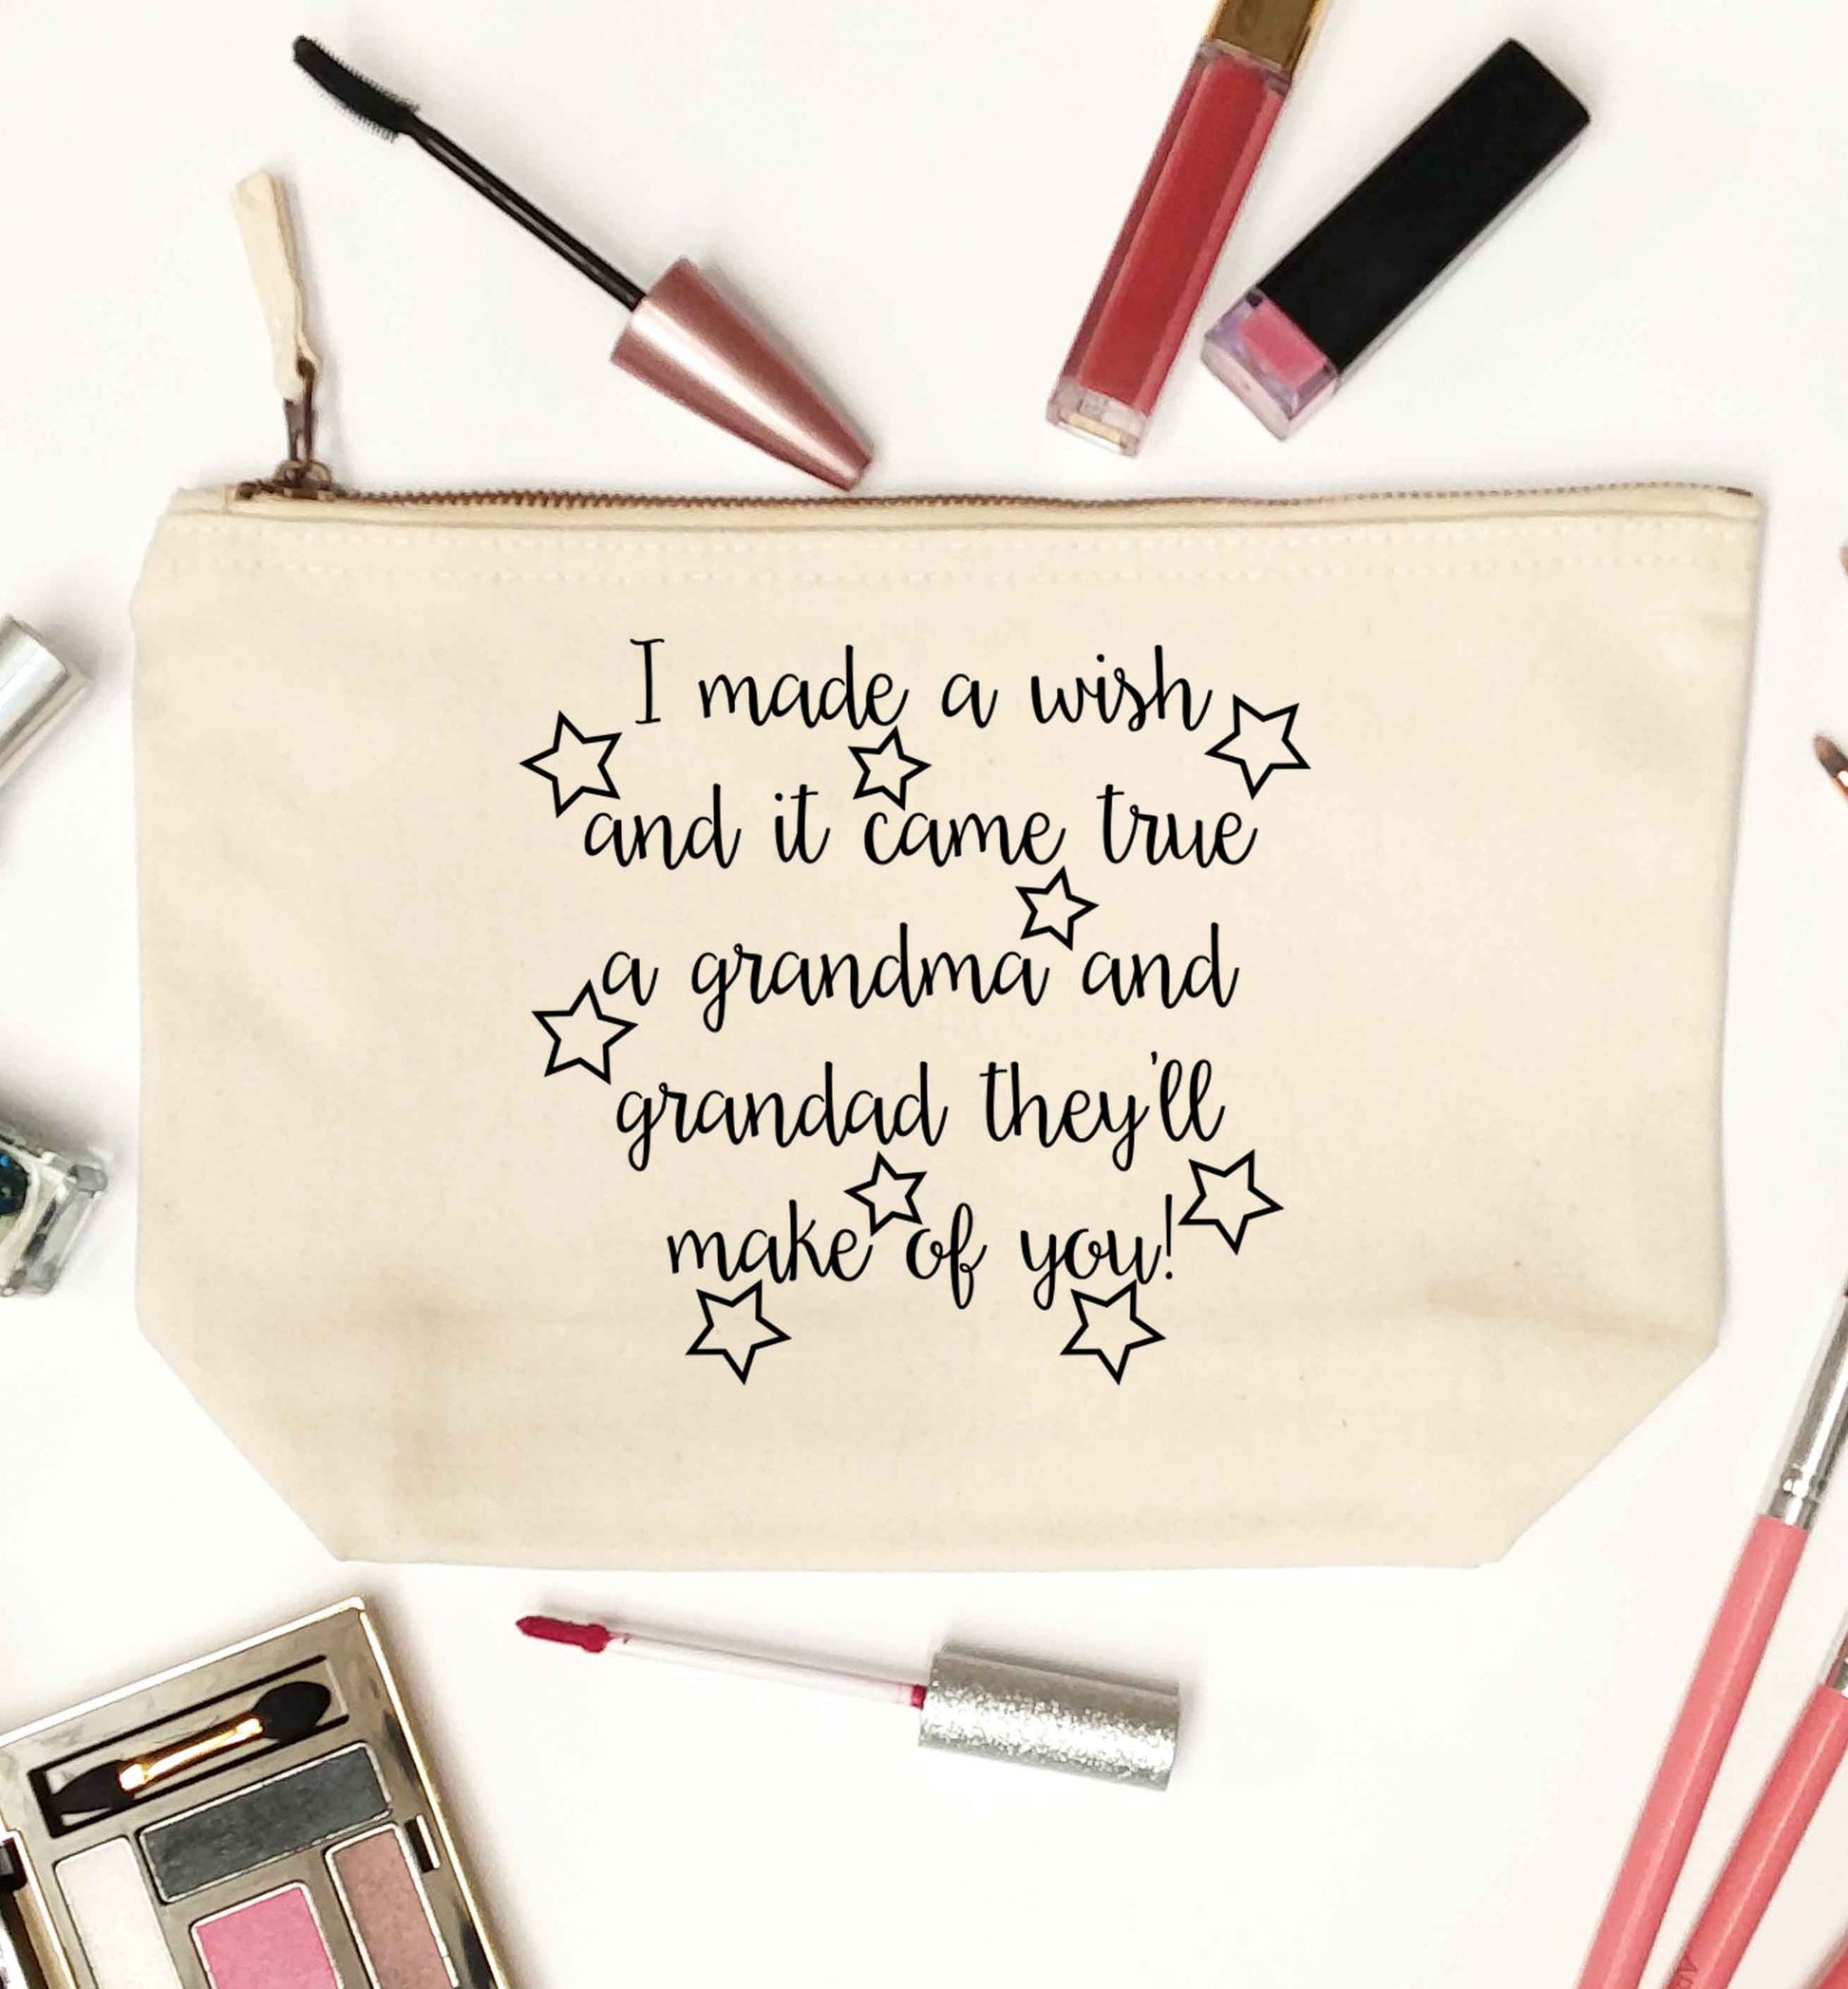 I made a wish
and it came true
a grandma and
grandad they'll
make of you!